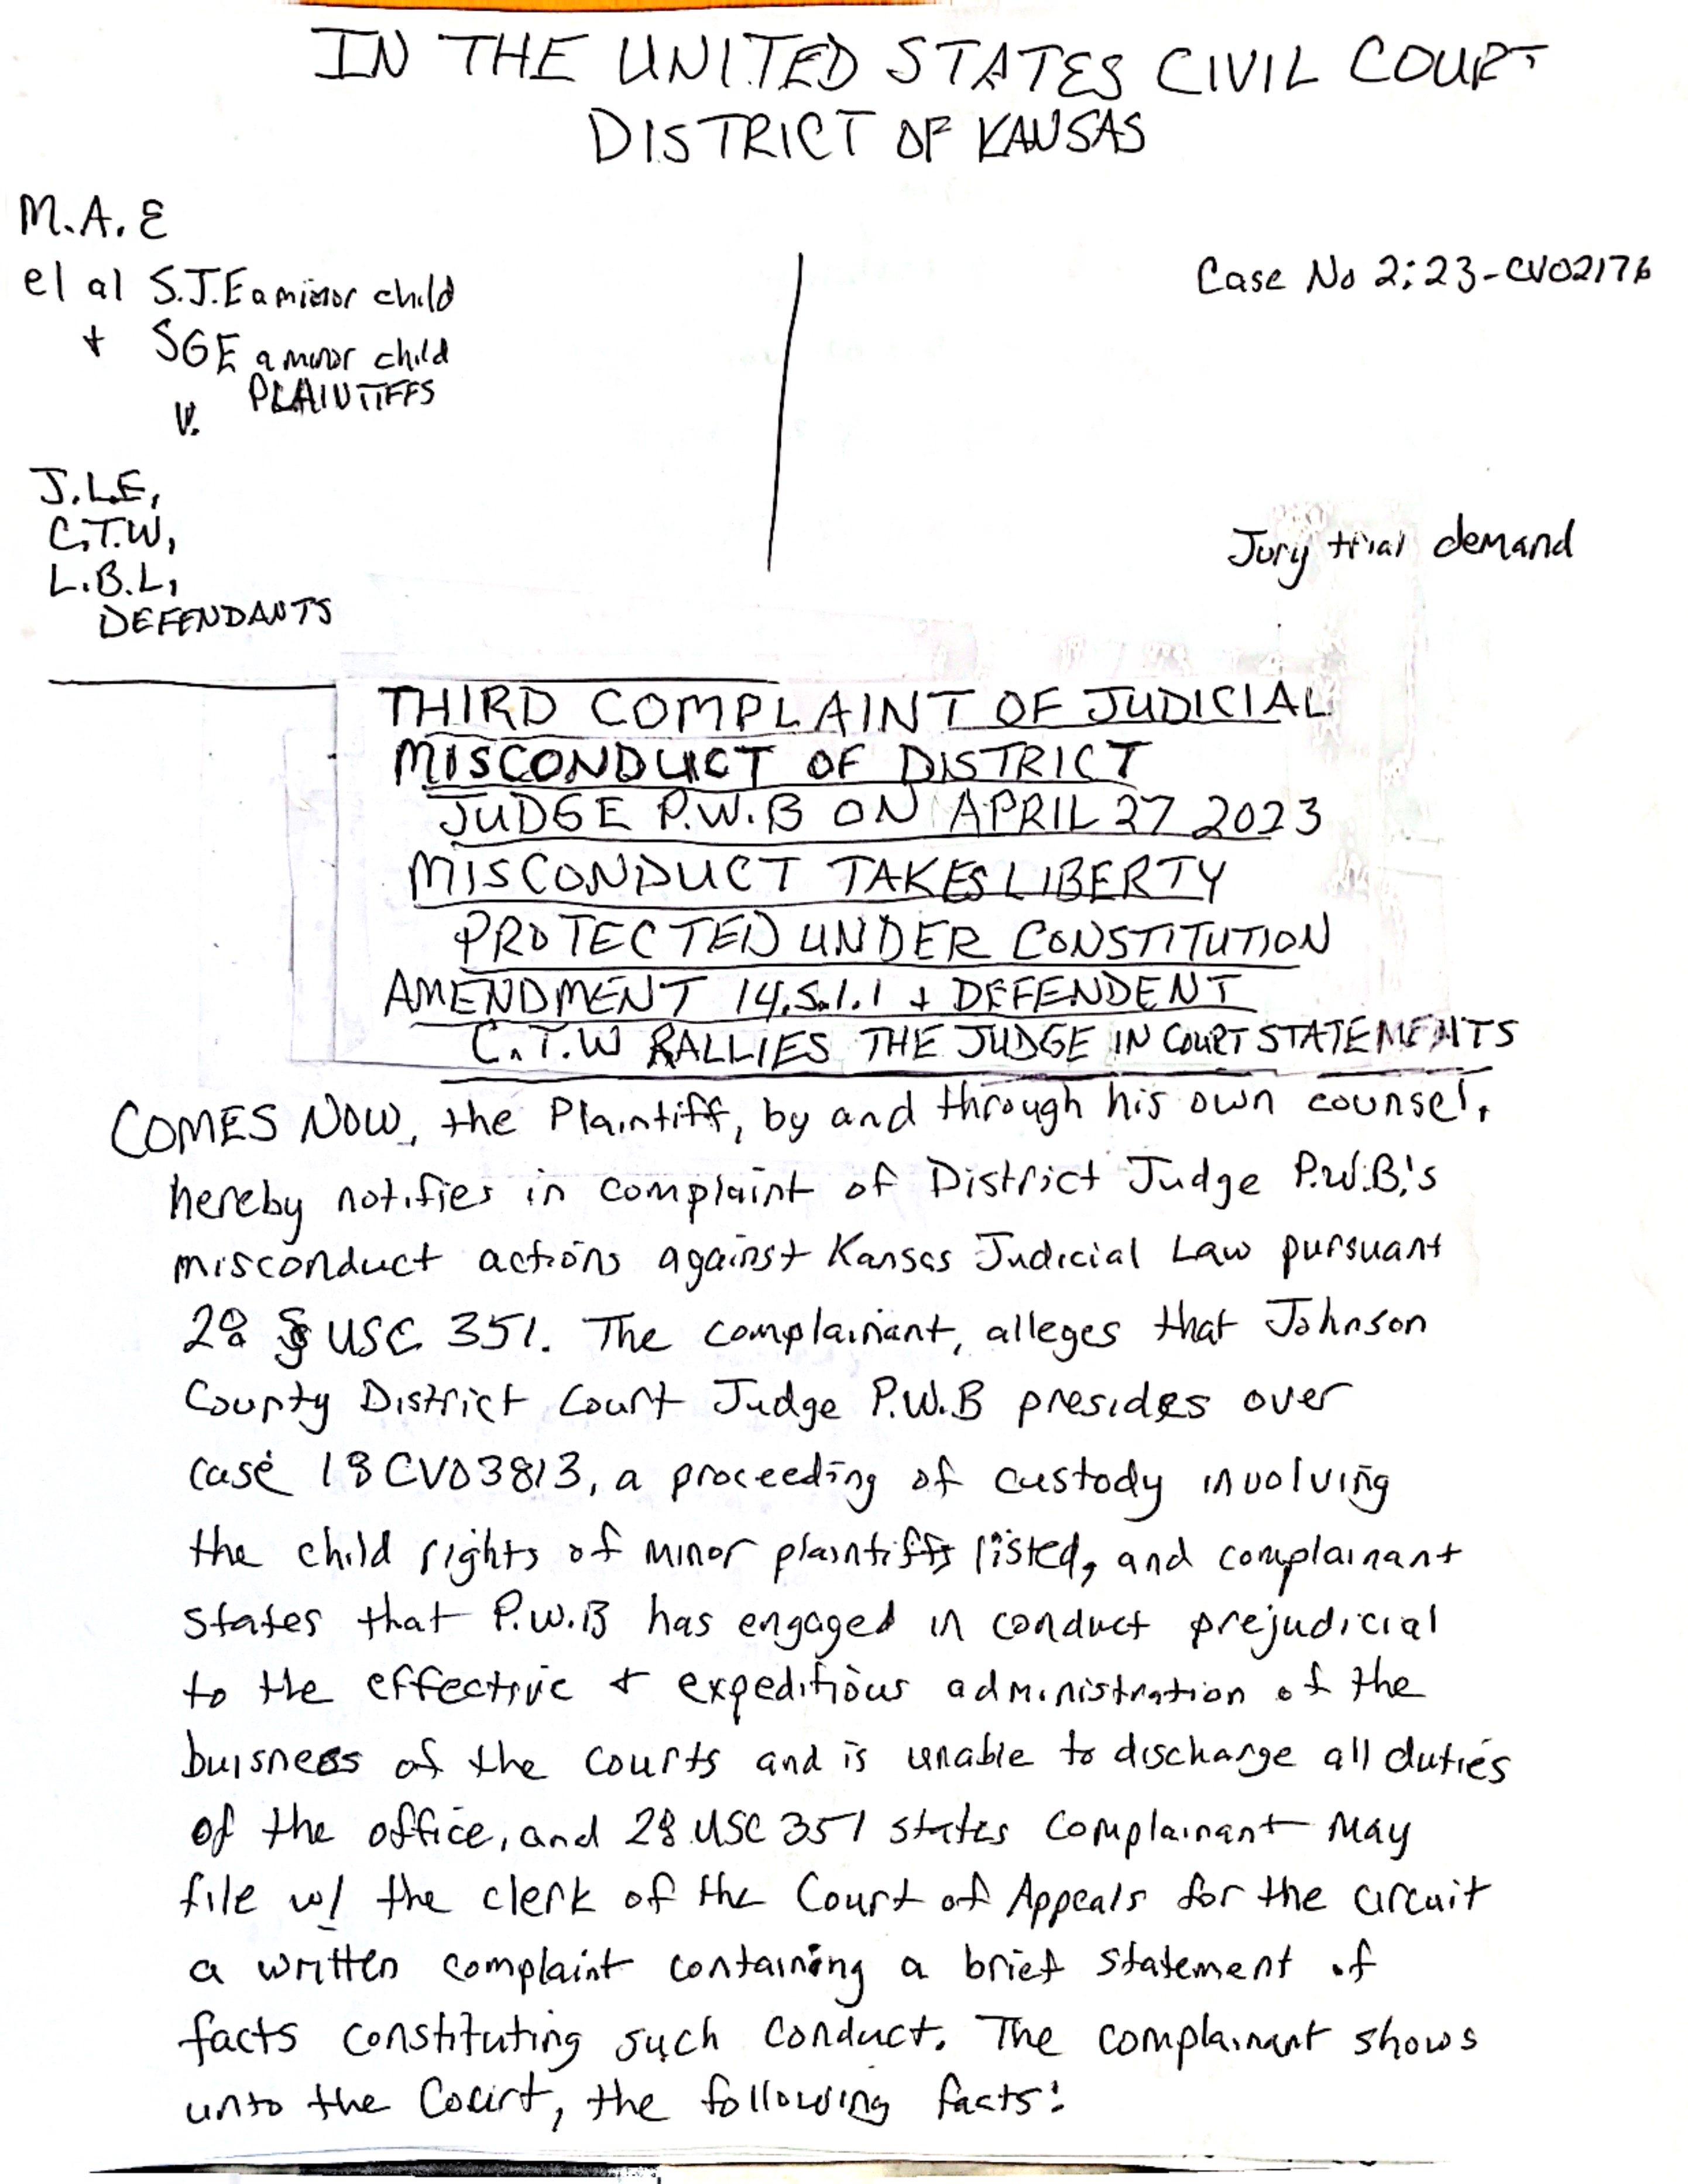 IN THE UNITED STATES CIVIL COURT
DISTRICT OF KANSAS
M.A.E
el al S.J.E a minor child
+ SGE a minor child
PLAINTIFFS
V.
J.L.E,
C.T.W,
L.B.L,
DEFENDANTS
Case No 2:23-CV02176
Jury trial demand
THIRD COMPLAINT OF JUDICIAL
MISCONDUCT OF DISTRICT
JUDGE P.W.B ON APRIL 27 2023
MISCONDUCT TAKES LIBERTY
PROTECTED UNDER CONSTITUTION
AMENDMENT 14.S.1.1 + DEFENDENT
C.T.W RALLIES THE JUDGE IN COURT STATEMENTS
COMES NOW, the Plaintiff, by and through his own counsel,
hereby notifies in complaint of District Judge P.W.B.'s
misconduct actions against Kansas Judicial Law pursuant
28 § USC 351. The complainant, alleges that Johnson
County District Court Judge P.W.B presides over
case 18CV03813, a proceeding of custody involving
the child rights of minor plaintiffs listed, and complainant
states that P.W.B has engaged in conduct prejudicial
to the effective + expeditious administration of the
buisness of the courts and is unable to discharge all duties
of the office, and 28 USC 351 states complainant may
file w/ the clerk of the Court of Appeals for the circuit
a written complaint containing a brief statement of
facts constituting such conduct. The complainant shows
unto the Court, the following facts: